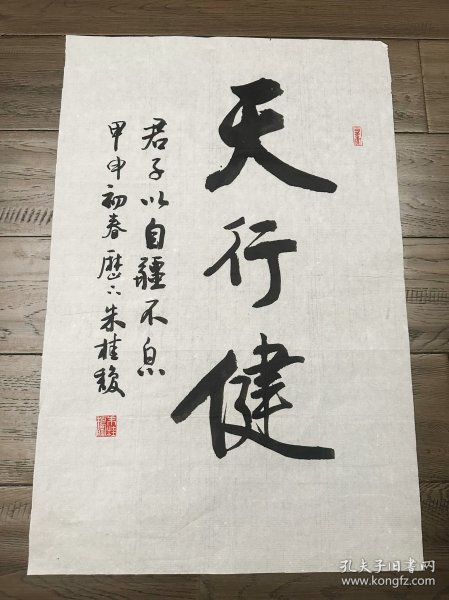 天行健
君子以自疆不息
甲申初春歷下朱桂馥
孔夫子旧书网
www.kongfz.com